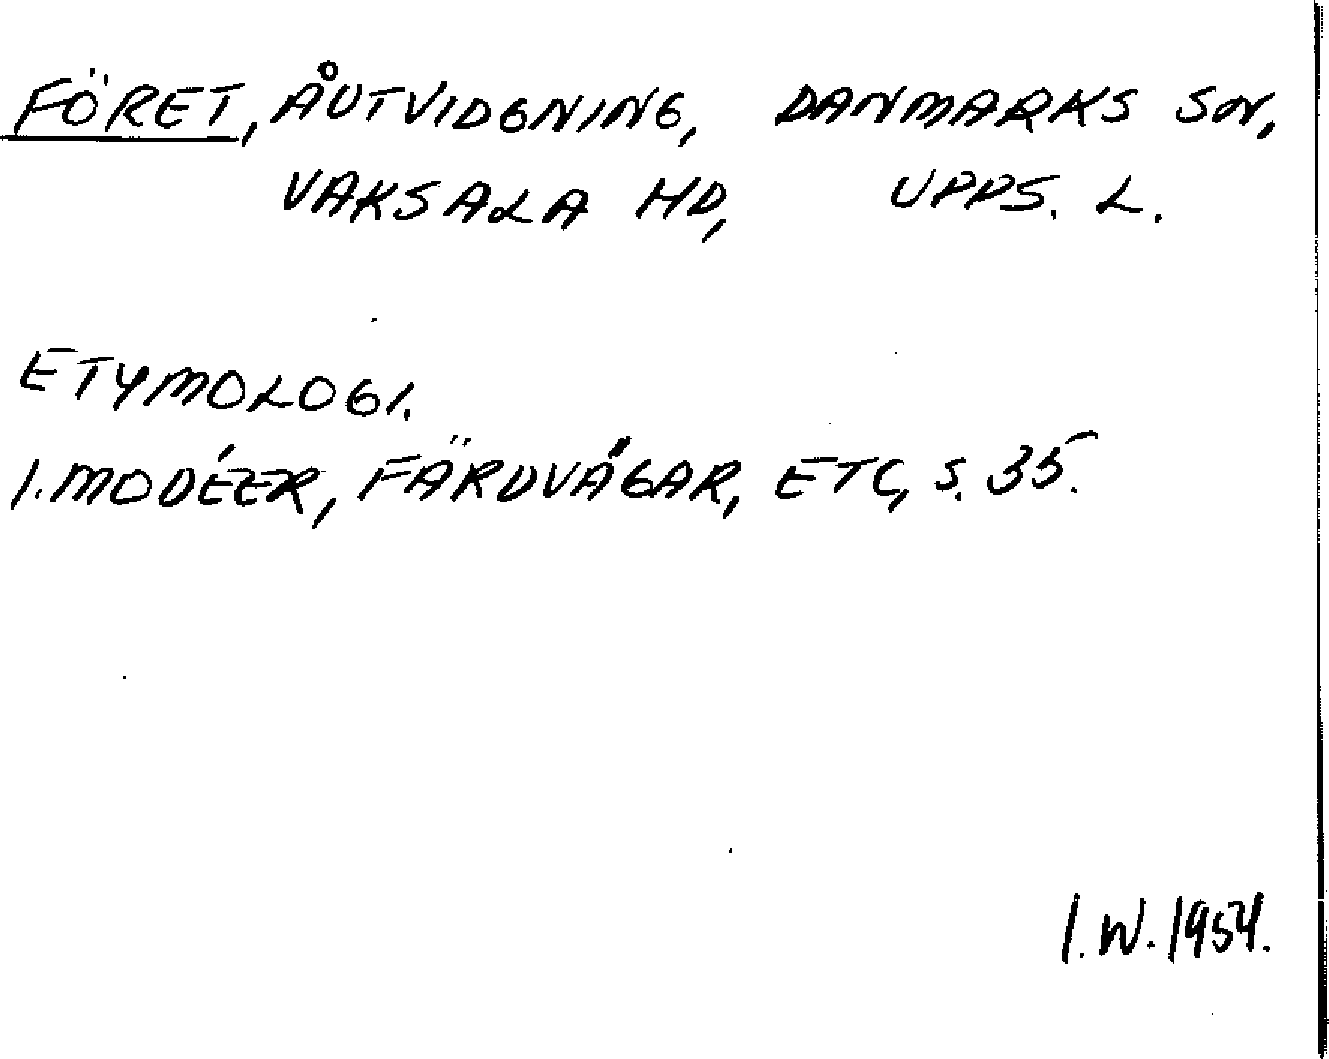 FÖRET, ÅUTVIDGNING, DANMARKS SN,
VAKSALA HD, UPPS. L.
ETYMOLOGI.
I. MODÉER, FÄRDVÄGAR, ETC, S. 35.
I. W. 1954.